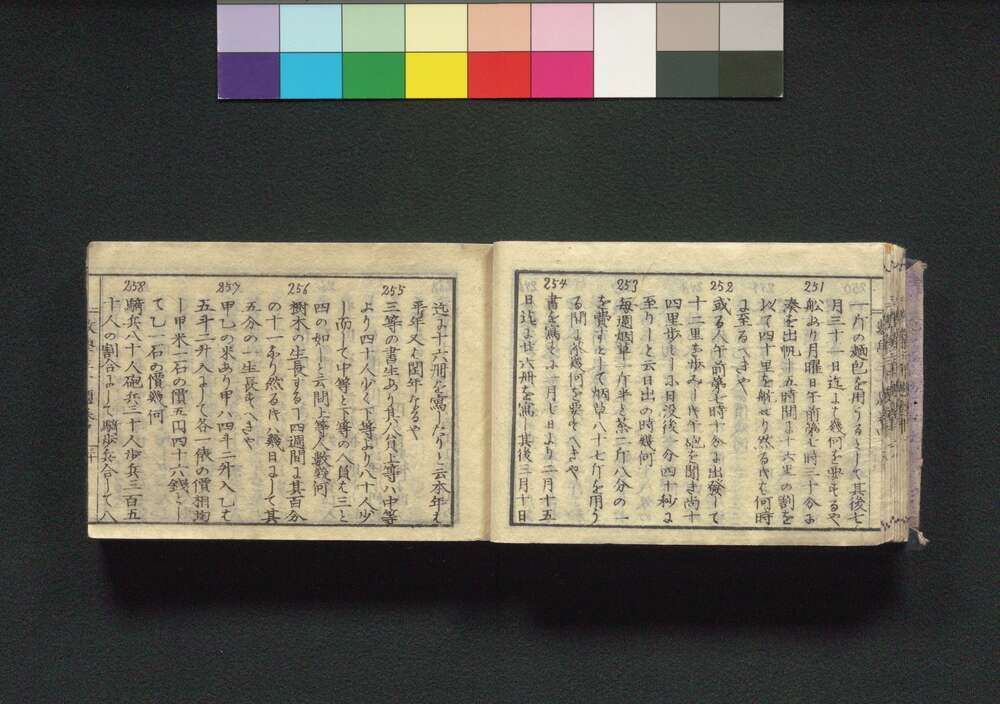 一斤の麺包を用うるとして其後七
月三十一日迄よて幾何を要もるや
251
舩あり月曜日午前第七時三十分ニ
湊を出帆し五時間ニ十六里の割を
以て四十里を航せり然る片も何時
ニ至るへきや
252
或る人午前第七時十分ニ出發して
十二里を歩みし片午砲を聞き尚十
四里歩しニ日没後一分四十秒ニ
至りしと云日出の時幾何
253
毎週烟草一斤半と茶二斤八分の一
を費すとして烟草八十七斤を用う
る間ニ茶幾何を要もへきや
254
書を寫も一月七日より二月十五
日迄ニ廿六册を寫し其後三月十日
迄ニ十六册を寫したりと云本年は
平年又は閏年なるや
255
三等の書生あり其人員上等は中等
より四十人少く下等より八十人少
し而して中等と下等の人員は三と
四の如しと云間上等人數幾何
256
樹木の生長する四週間ニ其百分
の十一なり然る片は幾日ニして其
五分の一生長もへきや
257
甲乙の米あり甲八四斗二升入乙は
五斗二升入ニして各一俵の價相均
し甲米一石の價五円四十六錢とし
て乙一石の價幾何
258
騎兵八十人砲兵二十人歩兵三百五
十人の割合ニして騎砲歩兵合して八